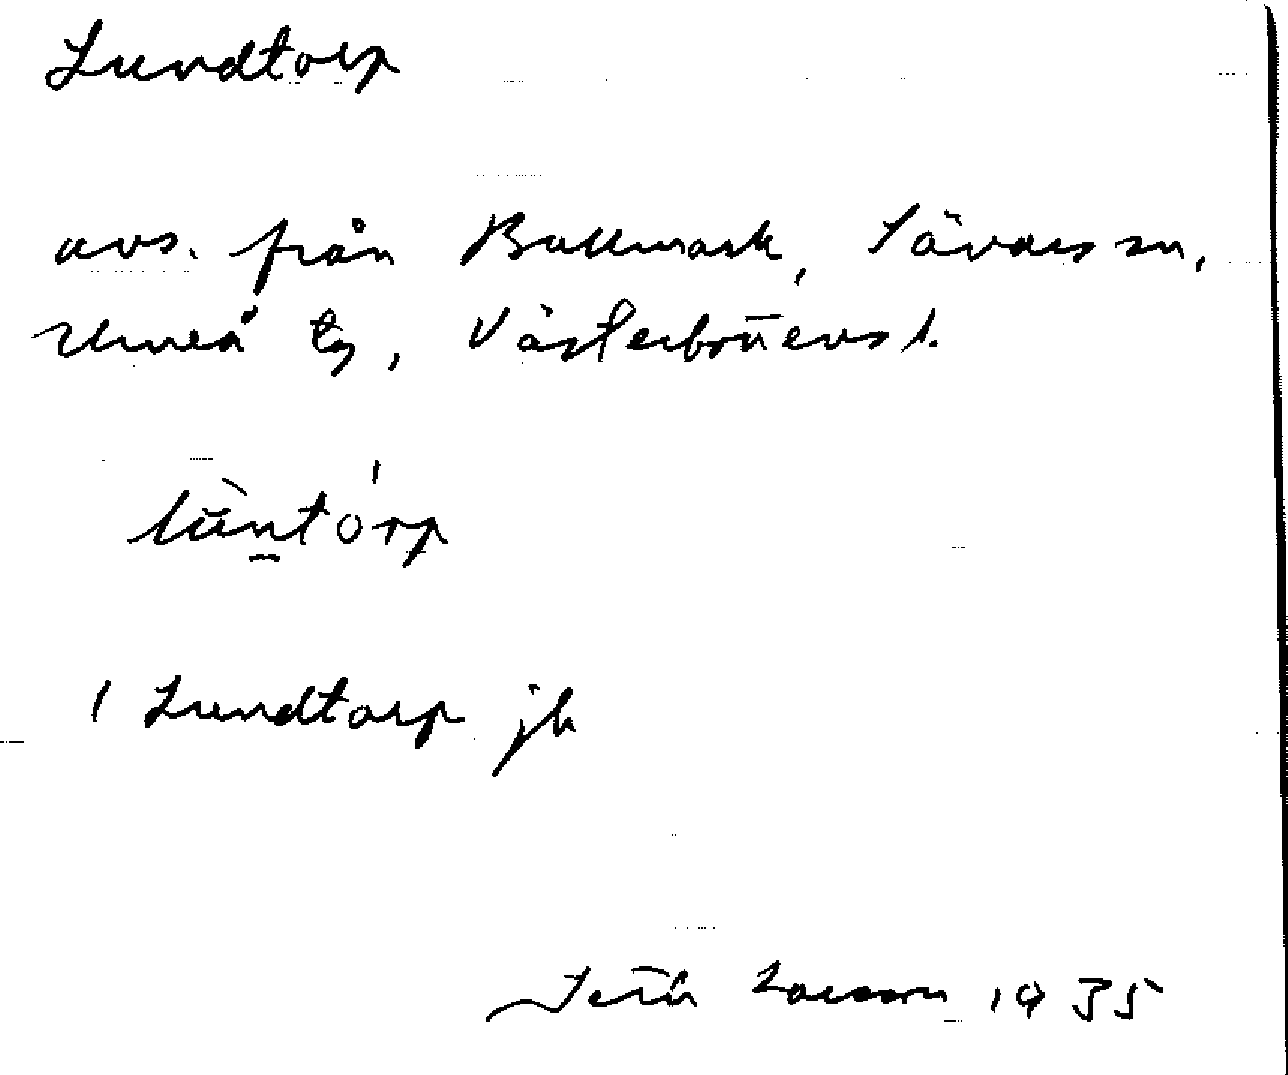 Lundtorp
avs. från Bullmark, Sävars sn,
Umeå tg, Västerbottens l.
lùntórp
1 Lundtorp jb
Larsson 1935